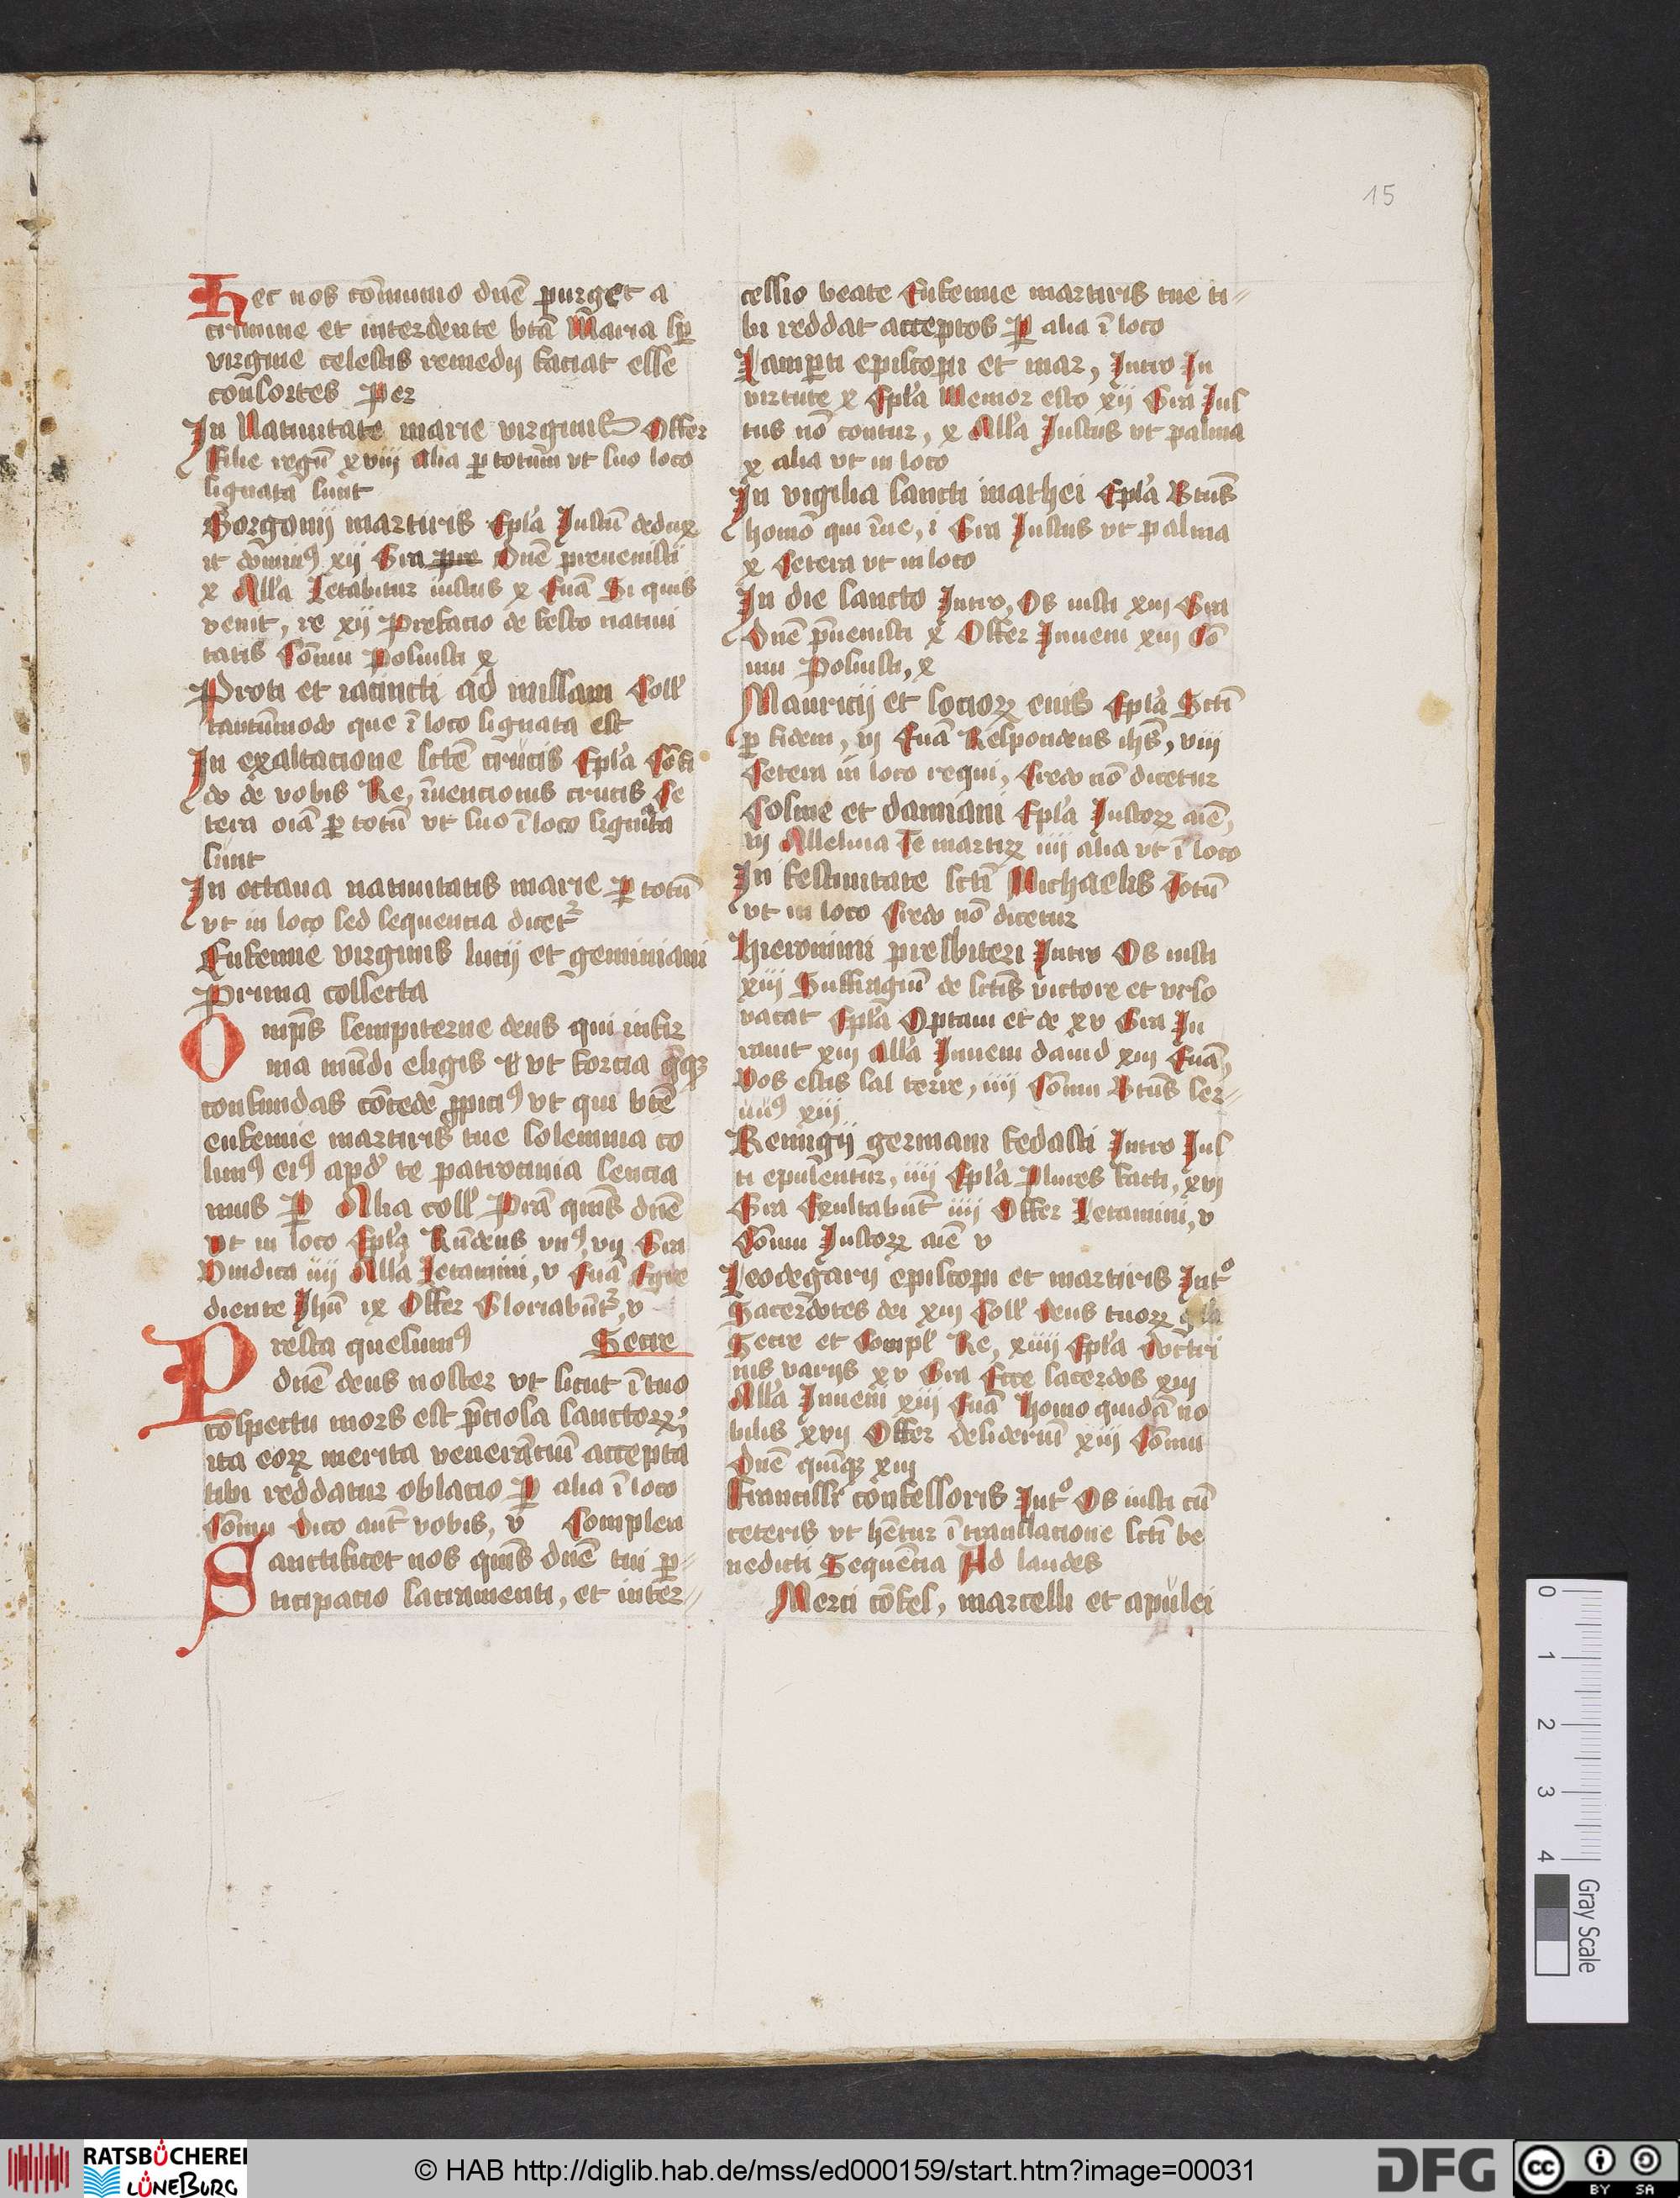 15
Hec nos cōmunio dnē purget a
crimine et intercedente btā Maria sp̄
virgine celestis remedij faciat esse
consortes Per
In Natiuitate marie virginis Offer
Filie regū xviii alia ꝑ totum vt suo loco
signata sunt
Gorgonij martiris Epl'a Justū dedux
it domin⁹ xij Gra pre Dnē preuenisti
x All'a Letabitur iustus x Euā Si quis
venit, re xij Prefacio de festo natiui
tatis Cōmu Posuisti x
Proti et iacincti ad missam Coll'
tantūmodo que ī loco signata est
In exaltacione sctē crucis Epl'a Cōfi
do de vobis Re, īuencionis crucis Ce
tera oīa ꝑ totū vt suo ī loco signata
sunt
In octaua natiuitatis marie ꝑ totū
vt in loco sed sequencia dicet᷑
Eufemie virginis lucij et geminiani
Prima collecta
Omp̄s sempiterne deus qui infir
ma mūdi eligis vt forcia
confundas cōcede ꝓpici⁹ vt qui btē
eufemie martiris tue solemnia co
lim⁹ ei⁹ apd' te patrocinia sencia
mus P Alia coll' Prā quis dnē
vt in loco Epl'a Rn̄dens vn⁹, vij Gra
Vindica iiij All'a Letamini, v Euā Egre
diente Jhū ix Offer Gloriabūt᷑, v
Presta quesum⁹ Secre
dnē deus noster vt sicut ī tuo
cōspectu mors est p̄ciosa sanctoꝝ
ita eoꝝ merita venerāciū accepta
tibi reddatur oblacio P alia ī loco
Cōmu Dico aut̄ vobis, v Complen
Sanctificet nos quis dnē tui ꝑ⸗
ticipacio sacramenti, et inter⸗
cessio beate Eufemie martiris tue ti⸗
bi reddat acceptos P alia ī loco
Lamperti episcopi et mar, Intro In
virtute x Epl'a Memor esto xij Gra Jus
tus nō contur, x All'a Justus vt palma
x alia vt in loco
In vigilia sancti mathei Epl'a Btūs
homō qui īue, i Gra Justus vt palma
x Cetera vt in loco
In die sancto Intro, Os iusti xiij Gra
Dnē p̄uenisti x Offer Inueni xiij Cō
mu Posuisti, x
Mauricij et socioꝝ eius Epl'a Sctī
ꝑ fidem, vj Euā Respondens ihs̄, viii
Cetera in loco requi, Credo nō dicetur
Cosme et damiani Epl'a Justoꝝ aīē,
vj Alleluia Te martiꝝ iiij alia vt ī loco
In festiuitate sctī Michaelis Totū
vt in loco Credo nō dicetur
Hieronimi presbiteri Intro Os iusti
xiij Suffragiū de sctīs victore et vrso
vacat Epl'a Optaui et de xv Gra Iu
rauit xiij All'a Inueni dauid xiij Euā,
Vos estis sal terre, iiij Cōmu Btūs ser⸗
uus xiij
Remigij germani fedasti Intro Jus
ti epulentur, iiij Epl'a Plures facti, xvj
Gra Exultabūt iiij Offer Letamini, v
Cōmu Justoꝝ aīē v
Leodegarij episcopi et martiris Intº
Sacerdotes dei xiij Coll' Deus tuoꝝ
Secre et Compl' Re, xiiij Epl'a Doctri
nis varijs xv Gra Ecce sacerdos xiij
All'a Inueni xiij Euā Homo quidā no
bilis xvij Offer desideriū xiij Cōmu
Dnē quinqꝫ xiij
Francissi confessoris Intº Os iusti cū
ceteris vt hētur ī translacione sctī be
nedicti Sequēcia Ad laudes
Merci cōfes, marcelli et apulei
0 1 2 3 4 Gray Scale
RATSBÜCHEREI
LÜNEBURG
© HAB http://diglib.hab.de/mss/ed000159/start.htm?image=00031
DFG
cc BY SA